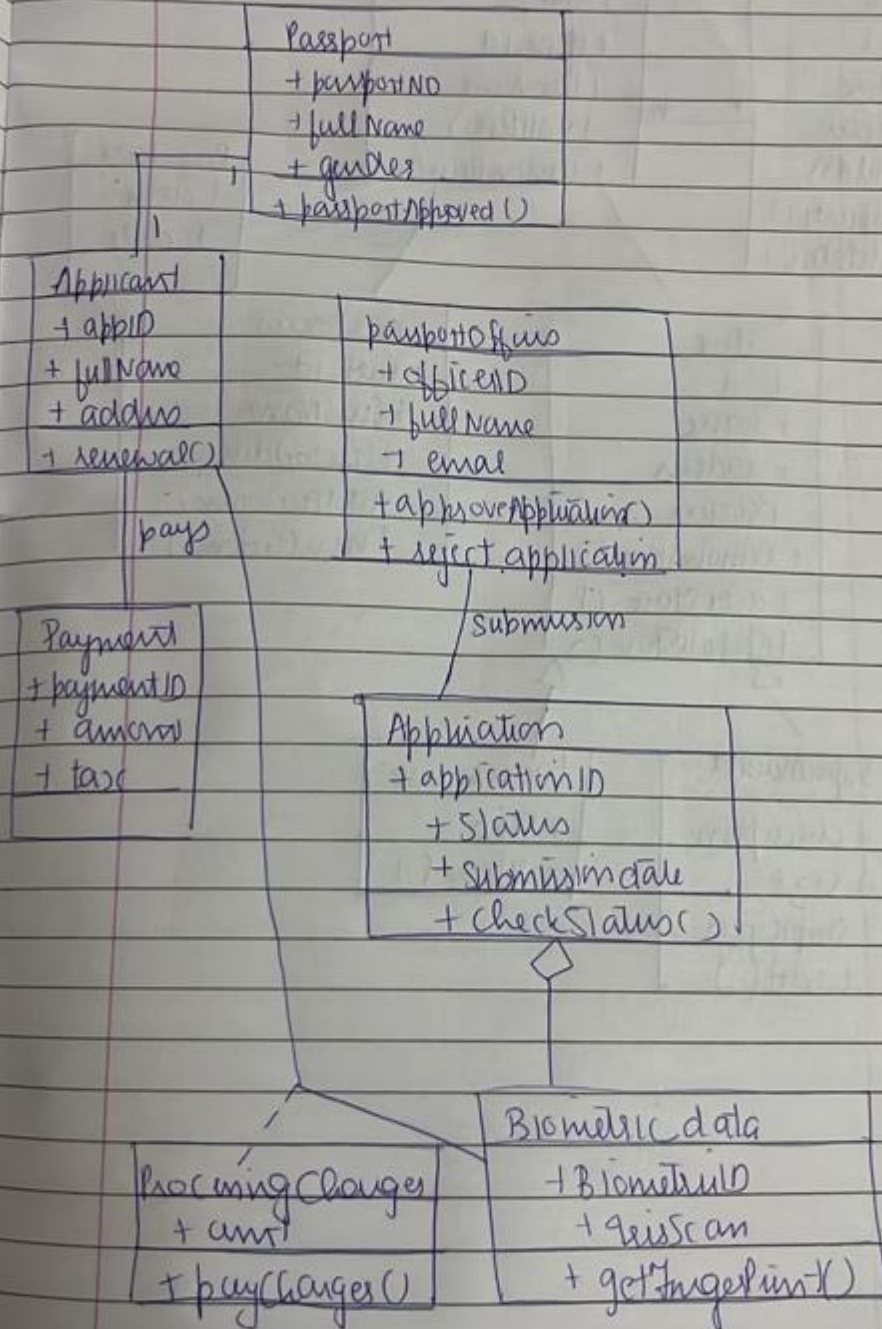 Passport
+ passportNO
+ fullName
+ gender
+ passportApproved()
1
1
Applicant
+ appID
+ fullName
+ address
+ renewal()
passportOfficer
+ officerID
+ fullName
+ email
+ approveApplication()
+ reject application
pays
submission
Payment
+ paymentID
+ amount
+ tax
Application
+ applicationID
+ Status
+ Submission date
+ checkStatus()
Processing Charges
+ amt
+ payCharges()
Biometric data
+ BiometricID
+ irisScan
+ getFingerPrint()